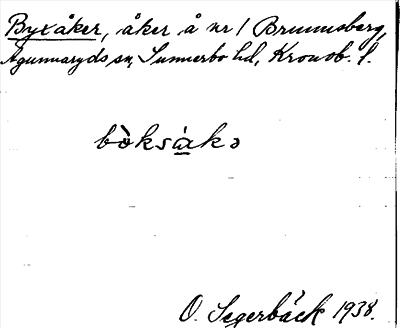 Byxåker, åker å nr 1 Brunnsberg,
Agunnaryds sn, Sunnerbo hd, Kronob. l.
bòksàkə
O. Segerbäck 1938.